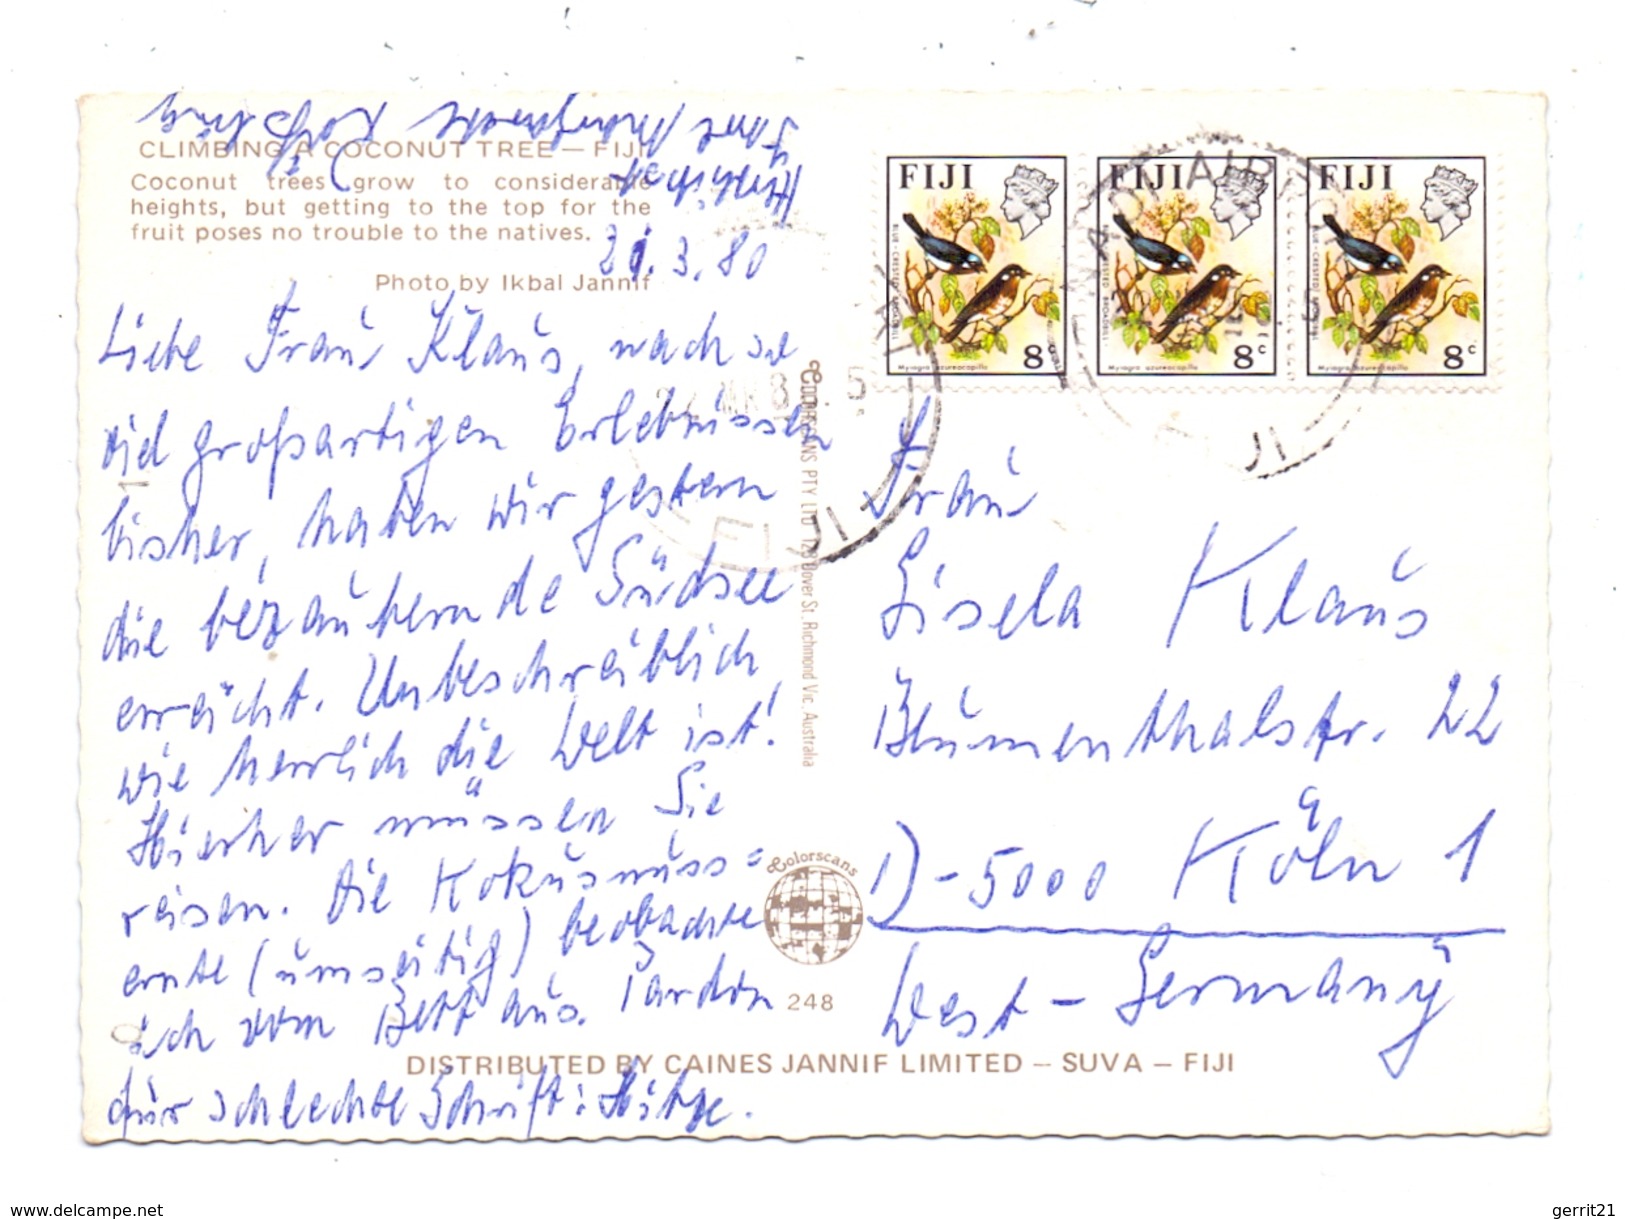 CLIMBING A COCONUT TREE — FIJI
Coconut trees grow to considerable
heights, but getting to the top for the
fruit poses no trouble to the natives.
Photo by Ikbal Jannif
21.3.80
Liebe Frau Klaus, nach so
viel großartigen Erlebnissen
bisher, haben wir gestern
die bezaubernde Südsee
erreicht. Unbeschreiblich,
wie herrlich die Welt ist!
Hierher müssen Sie
reisen. Die Kokusnuss=
ernte (umseitig) beobachte
ich vom Bett aus. Pardon
für schlechte Schrift: Hitze.
Herzlichst
Ihre
COLORSCANS PTY LTD 128 Dover St. Richmond Vic. Australia
Colorscans
248
DISTRIBUTED BY CAINES JANNIF LIMITED — SUVA — FIJI
FIJI
8c
BLUE-CRESTED BROADBILL
Myiagra azureocapilla
FIJI
8c
BLUE-CRESTED BROADBILL
Myiagra azureocapilla
FIJI
8c
BLUE-CRESTED BROADBILL
Myiagra azureocapilla
FIJI
FIJI
Frau
Gisela Klaus
Blumenthalstr. 22
D-5000 Köln 1
West-Germany
www.delcampe.net
gerrit21